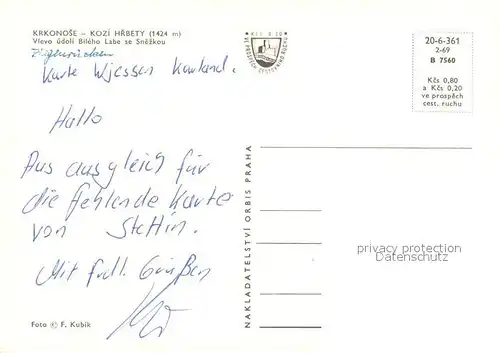 KRKONOŠE – KOZÍ HŘBETY (1424 m)
Vlevo údolí Bílého Labe se Sněžkou
Ziegenrücken
Karte
Hallo
Aus ausgleich für
die fehlende Karte
von Stettin.
Mit frdl. Grüßen
Foto © F. Kubík
NAKLADATELSTVÍ ORBIS PRAHA
VE PROSPĚCH CESTOVNÍHO RUCHU
20-6-361
2-69
B 7560
Kčs 0,80
a Kčs 0,20
ve prospěch
cest. ruchu
privacy protection
Datenschutz